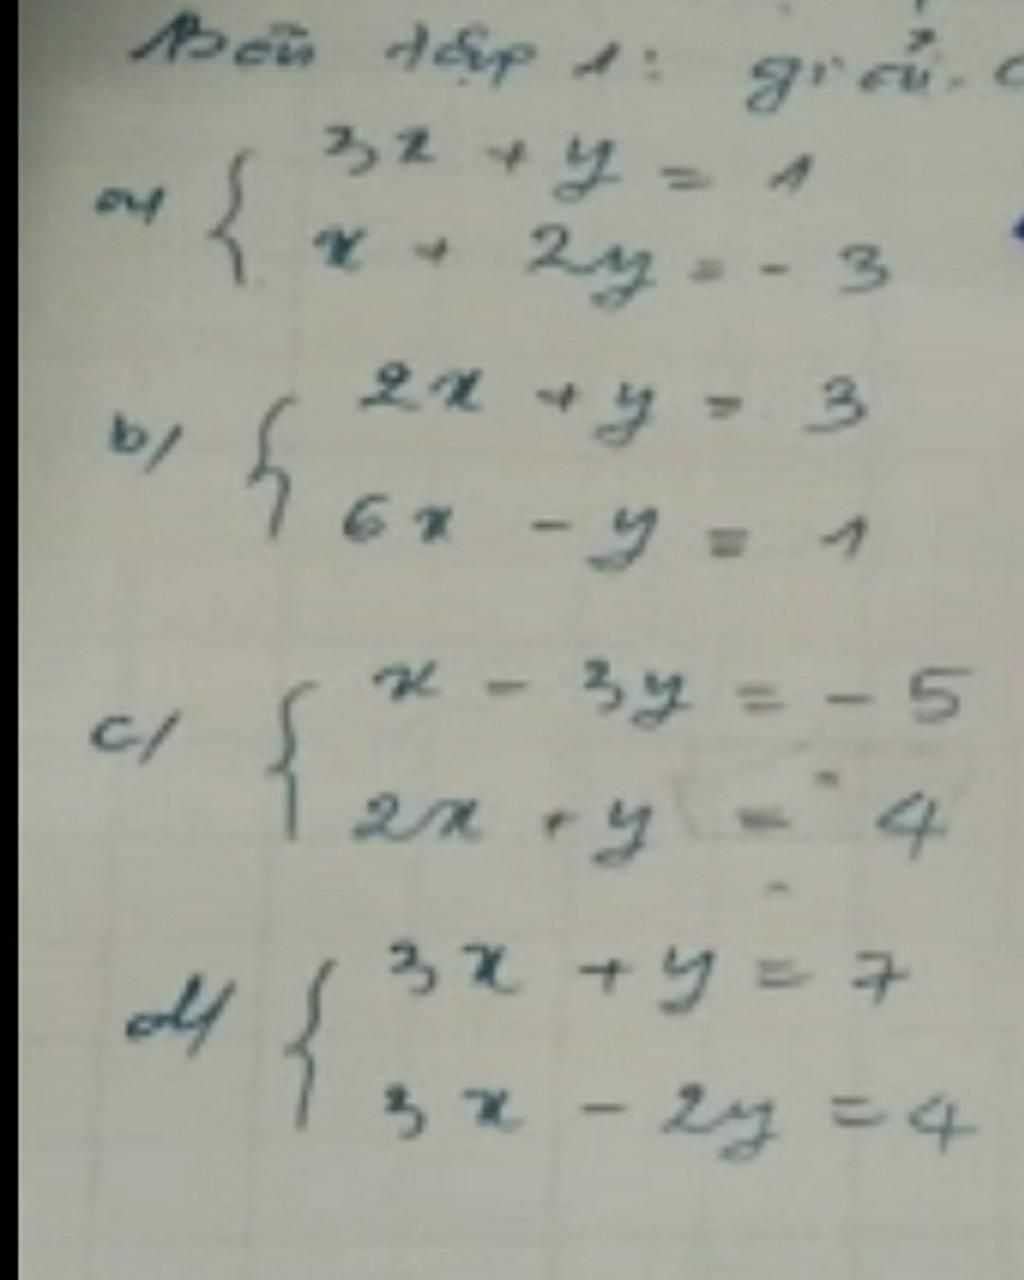 Bài tập 1: giải
a/ { 3x + y = 1
x + 2y = - 3
b/ { 2x + y = 3
6x - y = 1
c/ { x - 3y = - 5
2x + y = 4
d/ { 3x + y = 7
3x - 2y = 4